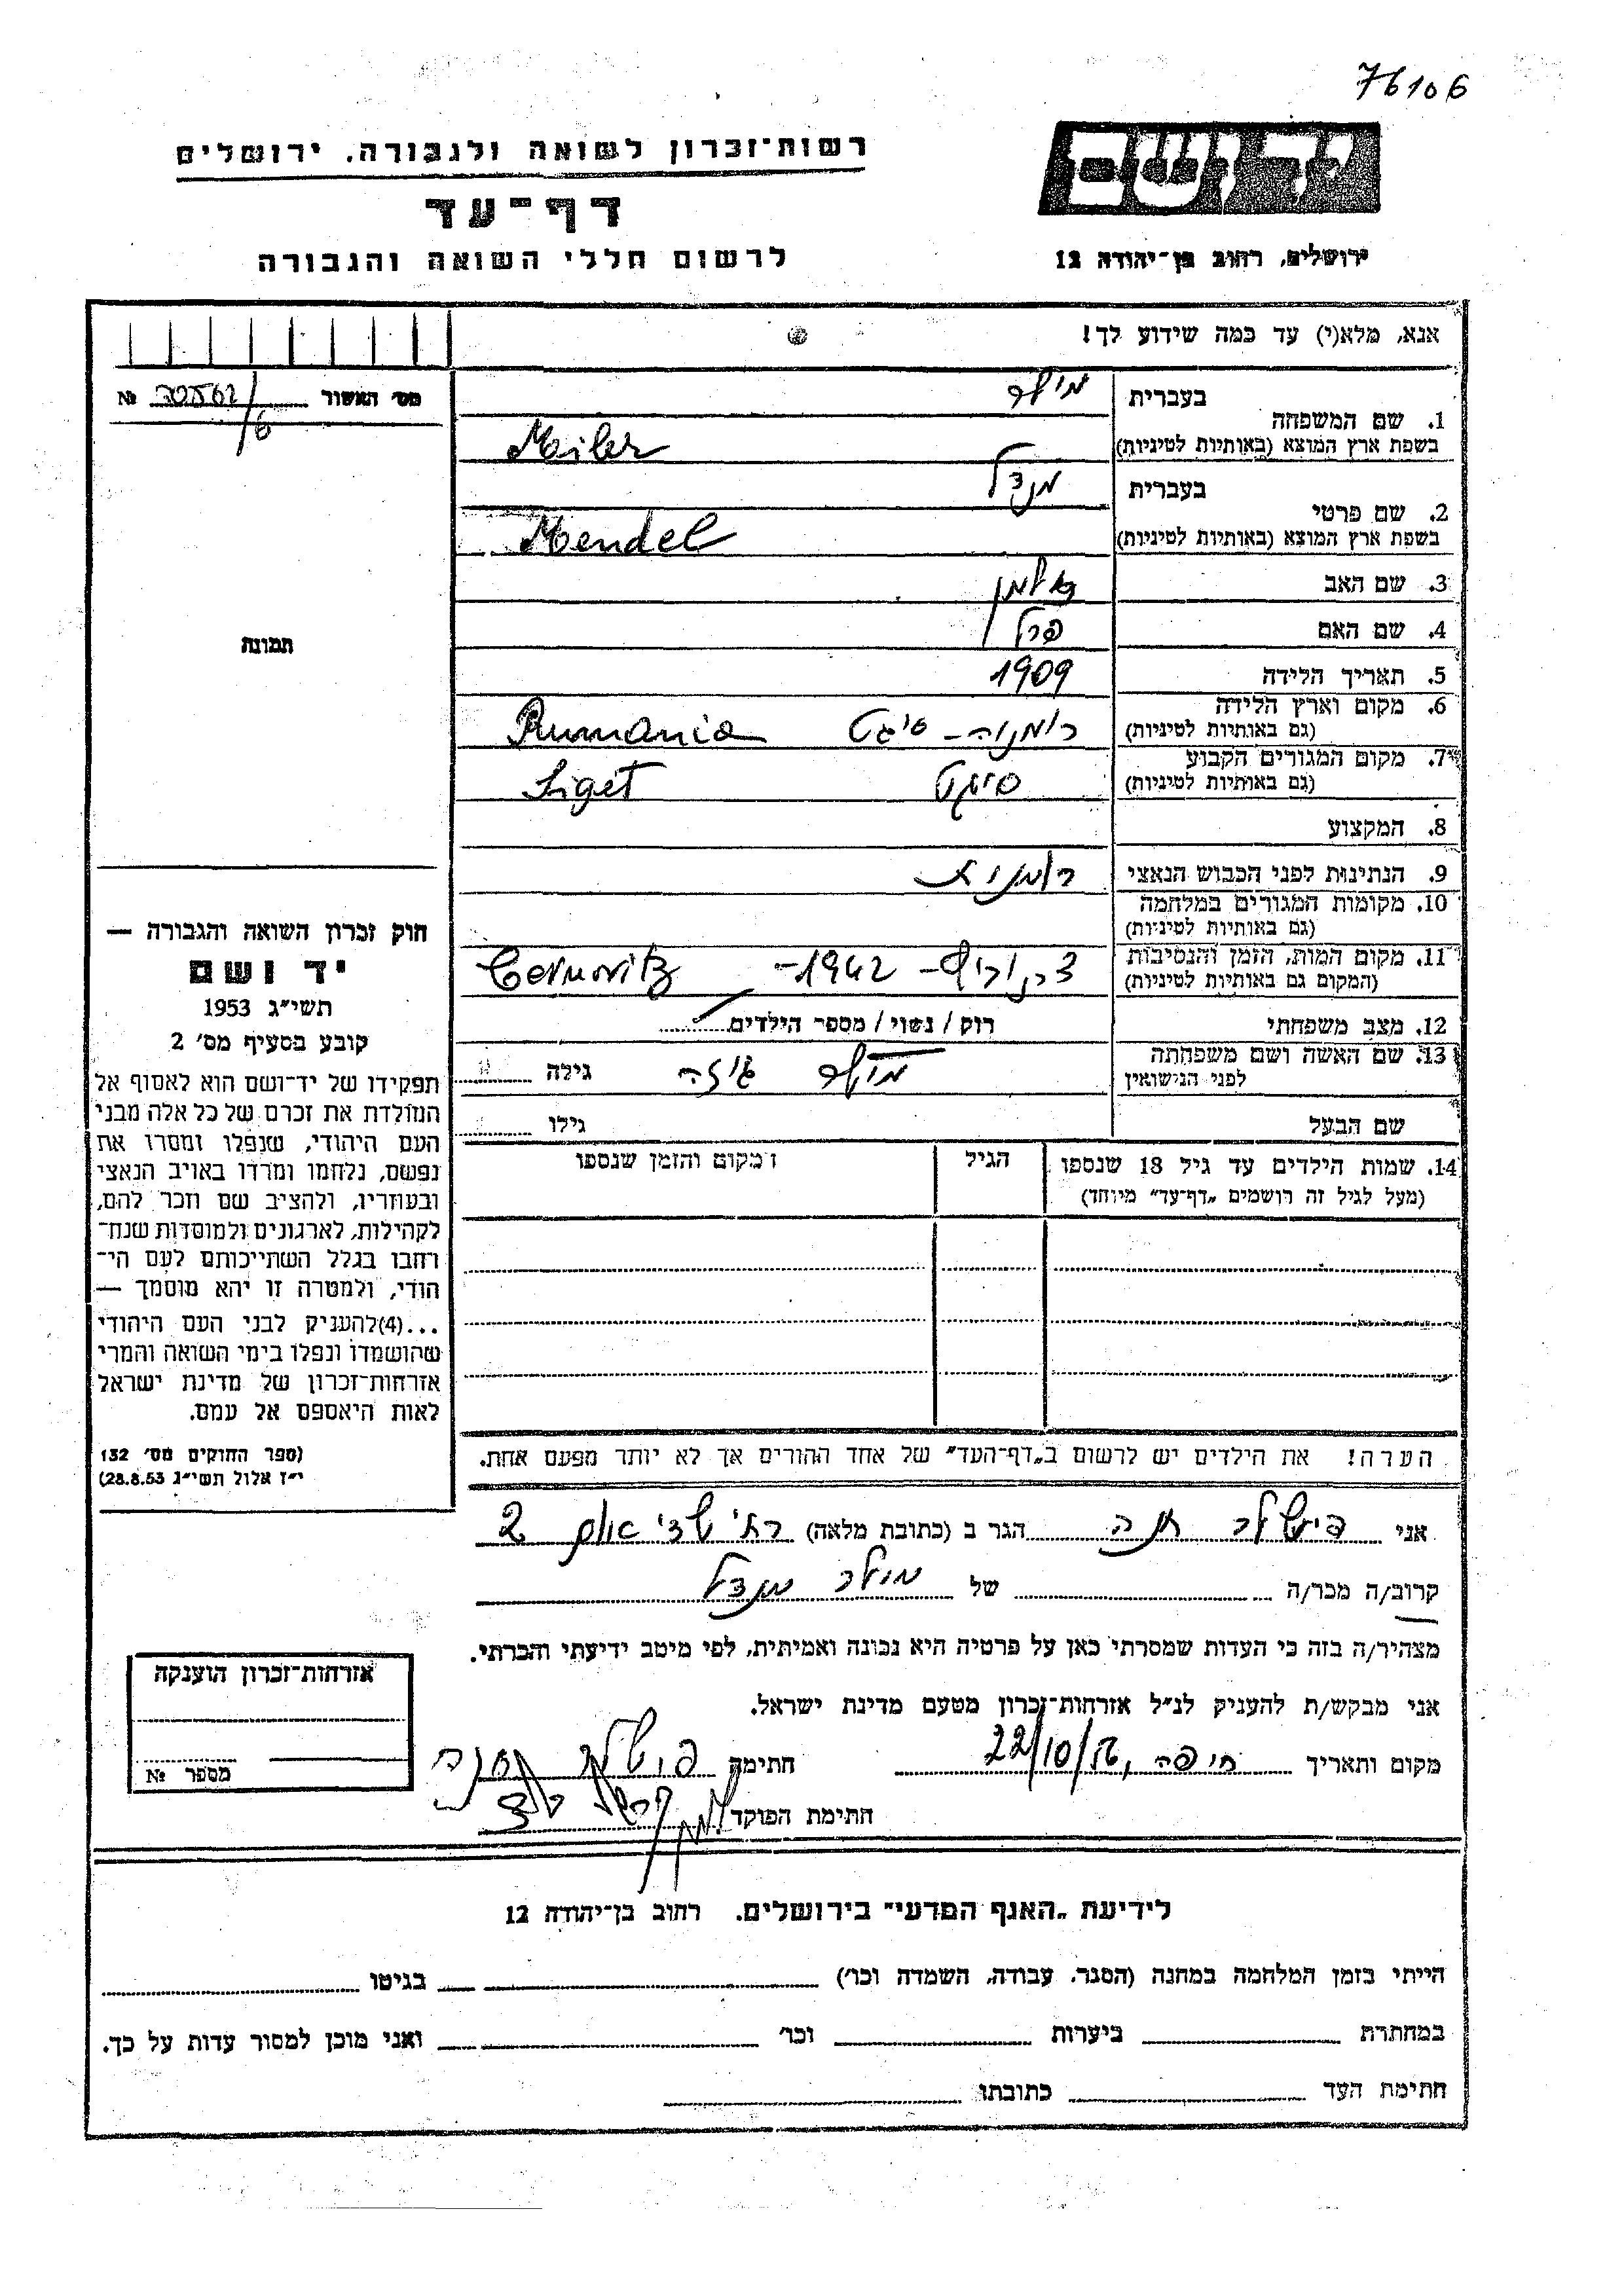 76106
רשות־זכרון לשואה ולגבורה, ירושלים
דף־עד
לרשום חללי השואה והגבורה
יד ושם
ירושלים, רחוב בן־יהודה 12
אנא, מלא(י) עד כמה שידוע לך!
מס׳ האשור №
תמונה
1. שם המשפחה בעברית מילר
בשפת ארץ המוצא (באותיות לטיניות) Meiler
2. שם פרטי בעברית מנדל
בשפת ארץ המוצא (באותיות לטיניות) Mendel
3. שם האב
4. שם האם פרל
5. תאריך הלידה 1909
6. מקום וארץ הלידה
(גם באותיות לטיניות) רומניה - סיגט Rumania
7. מקום המגורים הקבוע
(גם באותיות לטיניות) סיגט Siget
8. המקצוע
9. הנתינות לפני הכבוש הנאצי רומנית
10. מקומות המגורים במלחמה
(גם באותיות לטיניות)
11. מקום המות, הזמן והנסיבות
(המקום גם באותיות לטיניות) 1942 - Cernovitz
12. מצב משפחתי רוק / נשוי / מספר הילדים
13. שם האשה ושם משפחתה
לפני הנישואין מילר גילה
שם הבעל גילו
14. שמות הילדים עד גיל 18 שנספו הגיל המקום והזמן שנספו
(מעל לגיל זה רושמים „דף־עד״ מיוחד)
הערה! את הילדים יש לרשום ב„דף־העד״ של אחד ההורים אך לא יותר מפעם אחת.
חוק זכרון השואה והגבורה —
יד ושם
תשי״ג 1953
קובע בסעיף מס׳ 2
תפקידו של יד־ושם הוא לאסוף אל
המולדת את זכרם של כל אלה מבני
העם היהודי, שנפלו ומסרו את
נפשם, נלחמו ומרדו באויב הנאצי
ובעוזריו, ולהציב שם וזכר להם,
לקהילות, לארגונים ולמוסדות שנח־
רחבו בגלל השתייכותם לעם הי־
הודי, ולמטרה זו יהא מוסמך —
...(4)להעניק לבני העם היהודי
שהושמדו ונפלו בימי השואה והמרי
אזרחות־זכרון של מדינת ישראל
לאות היאספם אל עמם.
(ספר החוקים מס׳ 132
י״ז אלול תשי״ג 28.8.53)
אני חנה הגר ב (כתובת מלאה) 2
קרוב/ה מכר/ה של מילר מנדל
מצהיר/ה בזה כי העדות שמסרתי כאן על פרטיה היא נכונה ואמיתית, לפי מיטב ידיעתי והכרתי.
אני מבקש/ת להעניק לנ״ל אזרחות־זכרון מטעם מדינת ישראל.
מקום ותאריך חיפה, 22/10/ חתימה
חתימת הפוקד
אזרחות־זכרון הוענקה
מספר №
לידיעת „האגף המדעי״ בירושלים. רחוב בן־יהודה 12
הייתי בזמן המלחמה במחנה (הסגר, עבודה, השמדה וכו׳) בגיטו
במחתרת ביערות וכו׳ ואני מוכן למסור עדות על כך.
חתימת העד כתובתו